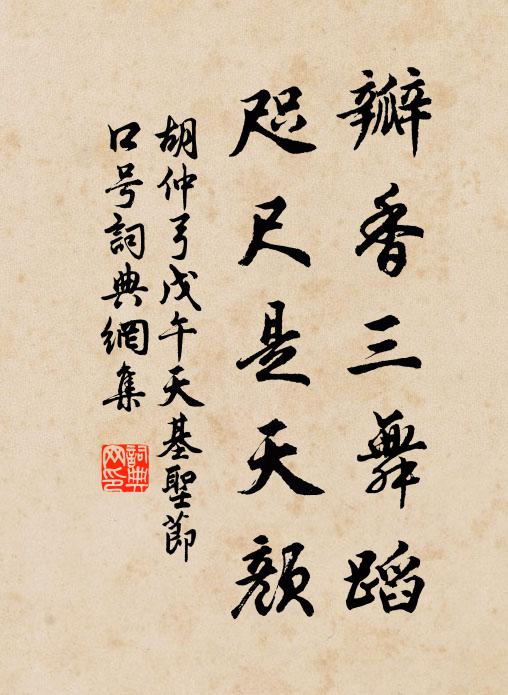 瓣香三舞蹈
咫尺是天顏
胡仲弓戊午天基聖節
口号詞典網集
詞典网印